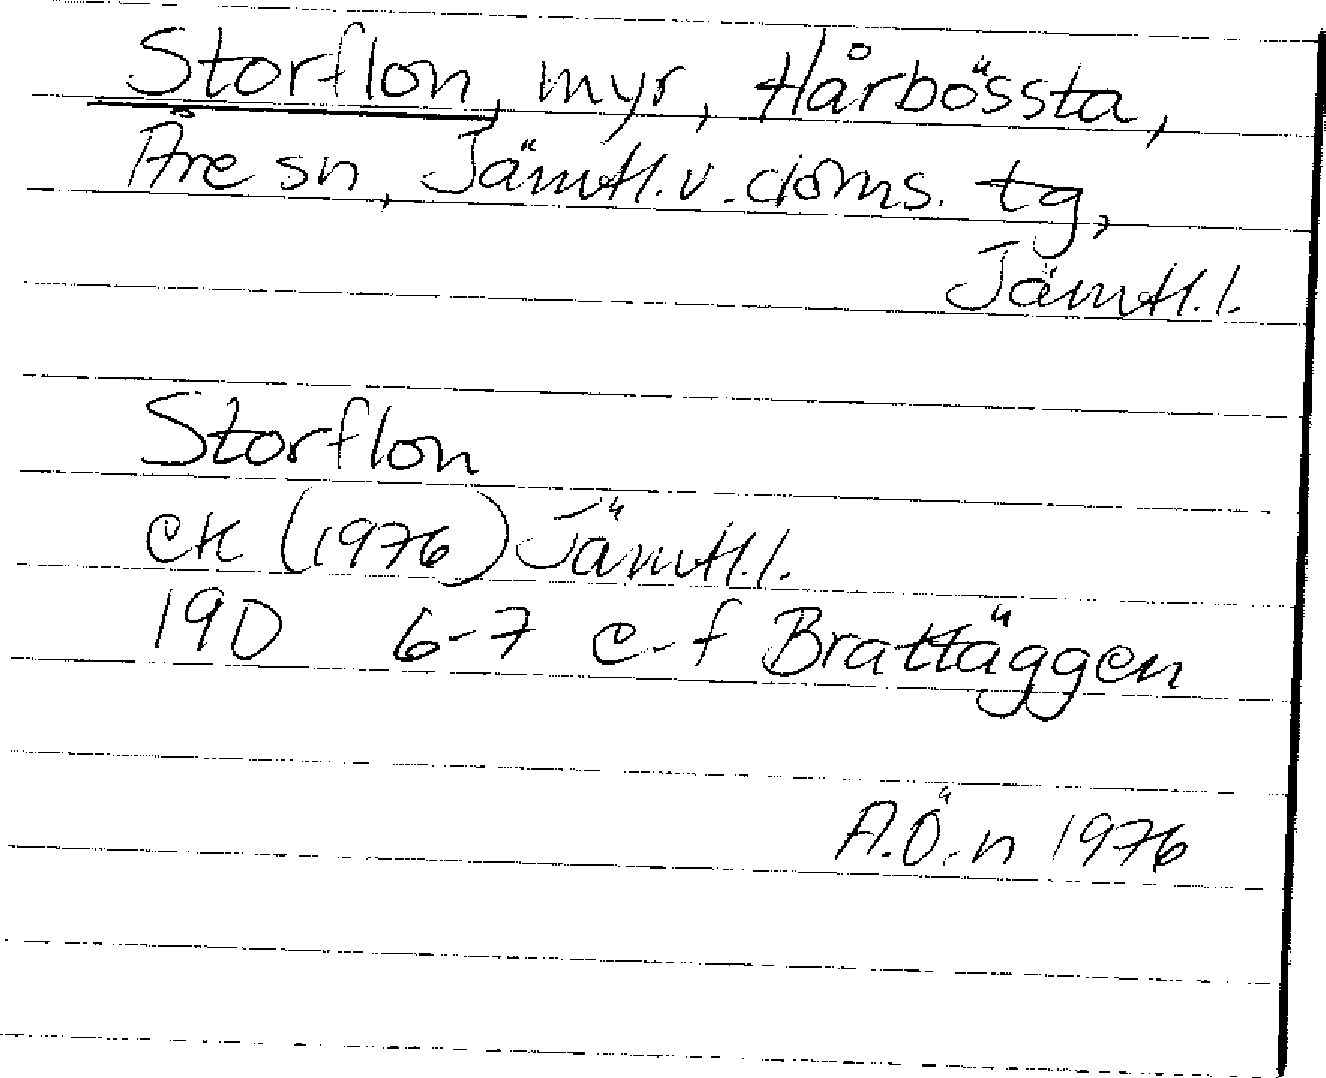 Storflon, myr, Hårbössta,
Åre sn, Jämtl.v.doms. tg,
Jämtl.l.
Storflon
ek (1976) Jämtl.l.
19D 6-7 e-f Brattäggen
A.Ö.n 1976